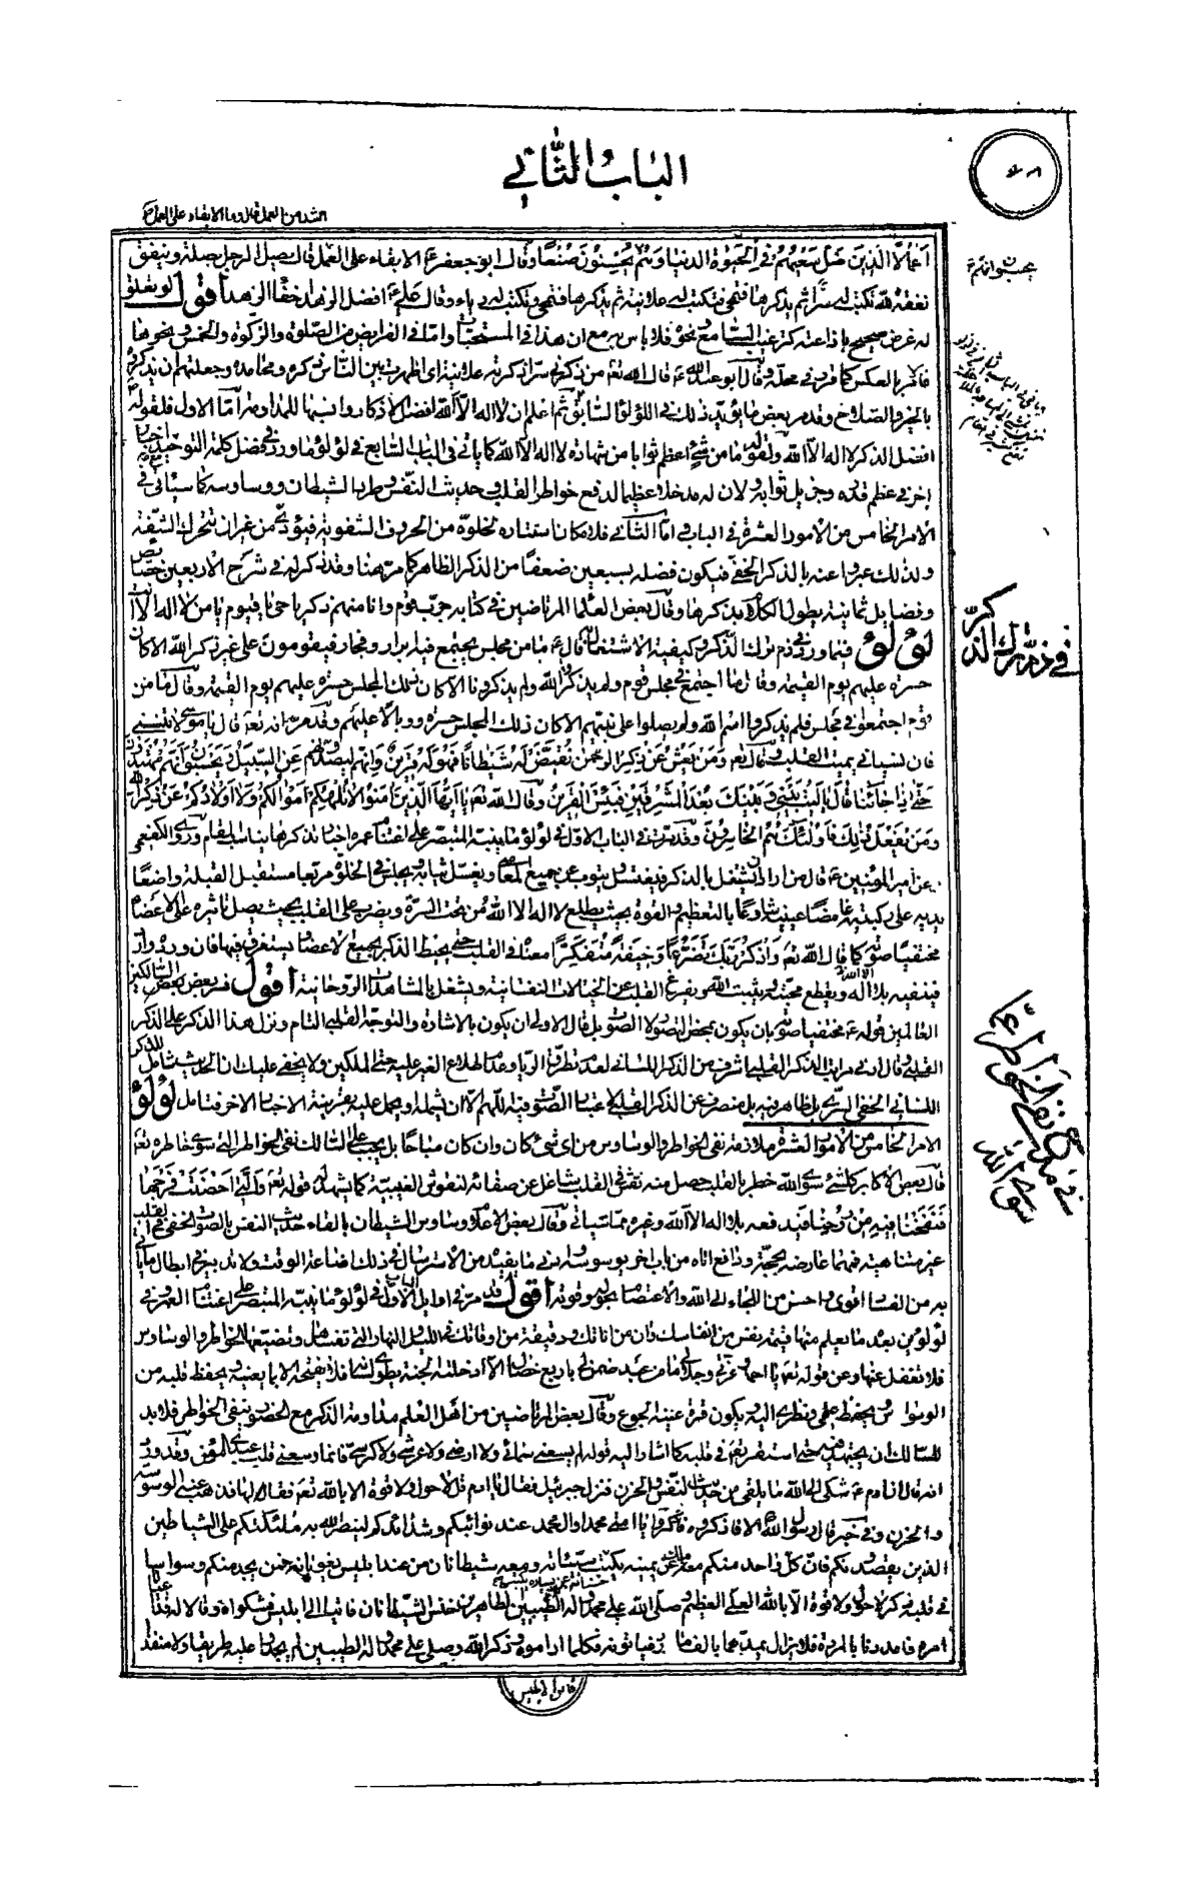 الباب الثاني
اشد من العمل قال وما الابقاء على العمل
اعمالا الذين ضل سعيهم في الحيوة الدنيا وهم يحسنون صنعا وقال ابو جعفر ع الابقاء على العمل قال يصل الرجل بصلة وينفق
نفقة لله تكتب له سرا ثم يذكرها فتمحى فتكتب له علانية ثم يذكرها فتمحى وتكتب له رياء وقال علي ع افضل الزهد اخفاء الزهد اقول لو تعلق
له غرض صحيح باذاعته كترغيب السامع ونحوه فلا باس به مع ان هذا في المستحبات واما في الفرايض من الصلوة والزكوة والخمس ونحوها
فالامر بالعكس كما قرر في محله وقال ابو عبد الله ع قال الله تعه من ذكرني سرا ذكرته علانية اي اظهرت بين الناس ذكره ومحامده وجعلتهم ان يذكروه
بالخير والصلاح وقد مر بعض ما يؤيد ذلك في اللؤلؤ السابق ثم اعلم ان لا اله الا الله افضل الاذكار وانسبها للمداومة اما الاول فلقوله ع
افضل الذكر لا اله الا الله ولقوله ما من شئ اعظم ثوابا من شهادة لا اله الا الله كما ياتي في الباب السابع في لؤلؤ ما ورد في فضل كلمة التوحيد اخبار
اخر في عظم قدره وجزيل ثوابه ولان له مدخلا عظيما لدفع خواطر القلب وحديث النفس وطرد الشيطان ووساوسه كما سيأتي في
الامر الخامس من الامور العشرة في الباب واما الثاني فلامكان استتاره لخلوه من الحروف الشفوية فيؤدى من غير ان تتحرك الشفة
ولذلك عبروا عنه بالذكر الخفي فيكون فضله بسبعين ضعفا من الذكر الظاهر كما مر هنا وقد ذكر له في شرح الاربعين خصايص
وفضايل ثمانية يطول الكلام بذكرها وقال بعض العلماء المرتاضين في كتابه جرب قوم وانا منهم ذكر يا حي يا قيوم يا من لا اله الا انت
لؤلؤ فيما ورد في ذم ترك الذكر وكيفية الاشتغال به قال ع ما من مجلس يجتمع فيه ابرار وفجار فيقومون على غير ذكر الله الا كان
حسرة عليهم يوم القيمة وقال ما اجتمع في مجلس قوم ولم يذكر الله ولم يذكرونا الا كان ذلك المجلس حسرة عليهم يوم القيمة وقال ما من
قوم اجتمعوا في مجلس فلم يذكروا اسم الله ولم يصلوا على نبيهم الا كان ذلك المجلس حسرة ووبالا عليهم وقد مر انه تعه قال يا موسى لا تنسني
فان نسياني يميت القلب وقال تعه ومن يعش عن ذكر الرحمن نقيض له شيطانا فهو له قرين وانهم ليصدونهم عن السبيل ويحسبون انهم مهتدون
حتى اذا جائنا قال يا ليت بيني وبينك بعد المشرقين فبئس القرين وقال الله تعه يا ايها الذين امنوا لا تلهكم اموالكم ولا اولادكم عن ذكر الله
ومن يفعل ذلك فاولئك هم الخاسرون وقد مرت في الباب الاول في لؤلؤ ما ينبه المتبصر على اغتنام عمره اخبار تذكرها يناسب المقام وروى الكفعمي
عن امير المؤمنين ع قال من اراد ان يشتغل بالذكر فيغتسل ويتوب عن جميع المعاصي ويغسل ثيابه ويجلس في الخلوة مربعا مستقبل القبلة واضعا
يديه على ركبتيه غامضا عينيه شارعا بالتعظيم والقوة بحيث يطلع لا اله الا الله من تحت السرة ويضرب على القلب بحيث يصل تاثيره على الاعضاء
مختفيا صوته كما قال الله تعه واذكر ربك تضرعا وخيفة متفكرا معناه في القلب حتى يحيط الذكر بجميع الاعضاء يستغرق فيها فان ورد وارد
فينفيه بلا اله الا الله ويقطع محبته ويثبت الله ويفرغ القلب عن الخيالات النفسانية ويشغل بالمشاهدات الروحانية اقول فسر بعض السالكين
العالمين قوله ع مختفيا صوته بان يكون بمحض الصوت لا الصوت بل قال الاولى ان يكون بالاشارة والتوجه القلبي التام ونزل هذا الذكر على الذكر
القلبي وقال ادنى مراتب الذكر القلبي اشرف من الذكر اللساني لعدم تطرق الريا وعدم اطلاع الغير عليه حتى الملكين ولا يخفى عليك ان الحديث شامل للذكر
اللساني الخفي السري بل ظاهر فيه بل منصرف عن الذكر القلبي الاعتبار الصوفية اللهم الا ان يشمله او يحمل عليه بقرينة الاخبار الاخر فتامل لؤلؤ
الامر الخامس من الامور العشرة ملازمة نفي الخواطر والوساوس من اي شئ كان وان كان مباحا بل يجب على السالك نفي الخواطر التي سوى خاطره تعه
قال بعض الاكابر كل شئ سوى الله خطر بالقلب حصل منه نقش في القلب شاغل عن صفائه لنقوش الغيبية كما يشهد له قوله تعه والتي احصنت فرجها
فنفخنا فيه من روحنا فيدفعه بلا اله الا الله وغيره مما سياتي وقال بعض الاعلام وساوس الشيطان بالقاء حديث النفس بالصوت الخفي في القلب
غير متناهية فمهما عارضه بحجة ودافع اتاه من باب اخر بوسوسة ادنى ما يفيده من الاسترسال في ذلك اضاعة الوقت ولا تدبير في ابطال ما ياتي
به من الفساد اقوى واحسن من التجاء الى الله والاعتصام بحوله وقوته اقول قد مر في اوايل الباب الاول في لؤلؤ ما ينبه المتبصر على اغتنام العمر وفي
لؤلؤين بعده ما يعلم منها قيمة نفس من انفاسك وان من اناتك ودقيقة من اوقاتك في الليل والنهار التي تفسدها وتضيعها بالخواطر والوساوس
فلا تغفل عنها وعن قوله تعه يا احمد وعزتي وجلالي ما من عبد ضمن لي باربع خصال الا ادخلته الجنة يطوي لسانه فلا يفتحه الا بما يعنيه ويحفظ قلبه من
الوسواس ويحفظ علمي ونظري اليه ويكون قرة عينيه الجوع وقال بعض المرتاضين من اهل العلم مداومة الذكر مع الحضور ينفي الخواطر فلا بد
للسالك ان يجتهد فيه حتى استقر يقه في قلبه كما اشار اليه قوله لم يسعني سمائي ولا ارضي ولا عرشي ولا كرسي فانما وسعني قلب عبدي المؤمن وقد ورد
انه قال ان ادم ع شكى الى الله ما يلقى من حديث النفس والحزن فنزل جبرئيل فقال يا ادم قل لا حول ولا قوة الا بالله تعه فقال لها فذهب عنه الوسوسة
والحزن وفي خبر قال رسول الله الا فاذكروا يا امة محمد محمدا وال محمد عند نوائبكم وشدائدكم لينصر الله به ملئكتكم على الشياطين
الذين يقصدونكم فان كل واحد منكم معه ملك عن يمينه يكتب حسناته وملك عن يساره يكتب سيئاته ومعه شيطانان من عند ابليس يغويانه فمن يجد منكم وسواسا
في قلبه وذكر لا حول ولا قوة الا بالله العلي العظيم وصلى الله على محمد واله الطيبين الطاهرين خنس الشيطانان فاتيا الى ابليس فشكواه وقالا له قد اعيانا
امره فامددنا بالمردة فلا يزال يمدهما بالف مارد فياتونه فكلما راموه ذكر الله وصلى على محمد واله الطيبين لم يجدوا عليه طريقا ولا منفذا
قالوا لابليس
في ذم ترك الذكر
في مدح نفي الخواطر عما سوى الله